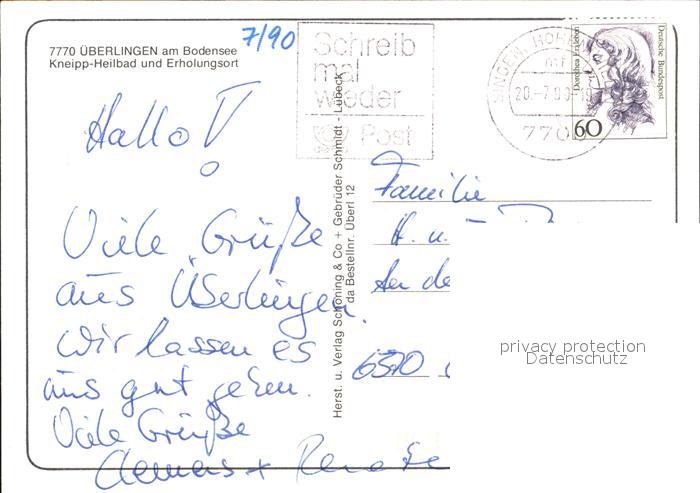 7770 ÜBERLINGEN am Bodensee
Kneipp-Heilbad und Erholungsort
7/90
Schreib
mal
wieder
Post
SINGEN, HOHENTWIEL
mf
20.-7.90
7700
Dorothea Erxleben
Deutsche Bundespost
60
Hallo!
Viele Grüße
aus Überlingen.
Wir lassen es
uns gut gehen.
Viele Grüße
Clemens + Renate
Herst. u. Verlag Schöning & Co + Gebrüder Schmidt - Lübeck
da Bestellnr. Überl 12
Familie
H. u.
An de
privacy protection
Datenschutz